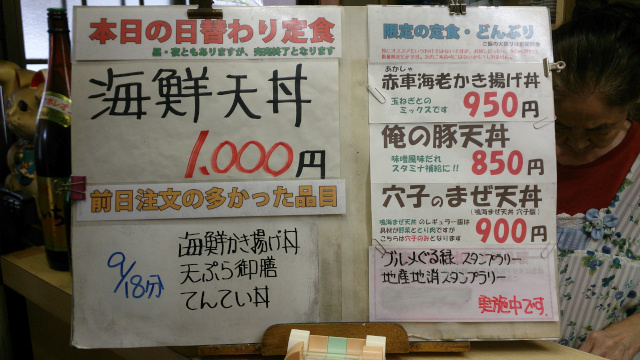 本日の日替わり定食
海鮮天丼
1.000円
前日注文の多かった品目
9/18分
海鮮かき揚げ丼
天ぷら御膳
てんてい丼
限定の定食・どんぶり
あかしゃ
赤車海老かき揚げ丼
玉ねぎとの
ミックスです
950円
俺の豚天丼
味噌風味だれ
スタミナ補給に!!
850円
穴子のまぜ天丼
(鳴海まぜ天丼 穴子版)
鳴海まぜ天丼 のレギュラー版は
具材が野菜ととり肉ですが
こちらは穴子のみとなります
900円
グルメぐる緑 スタンプラリー
地産地消スタンプラリー
実施中です